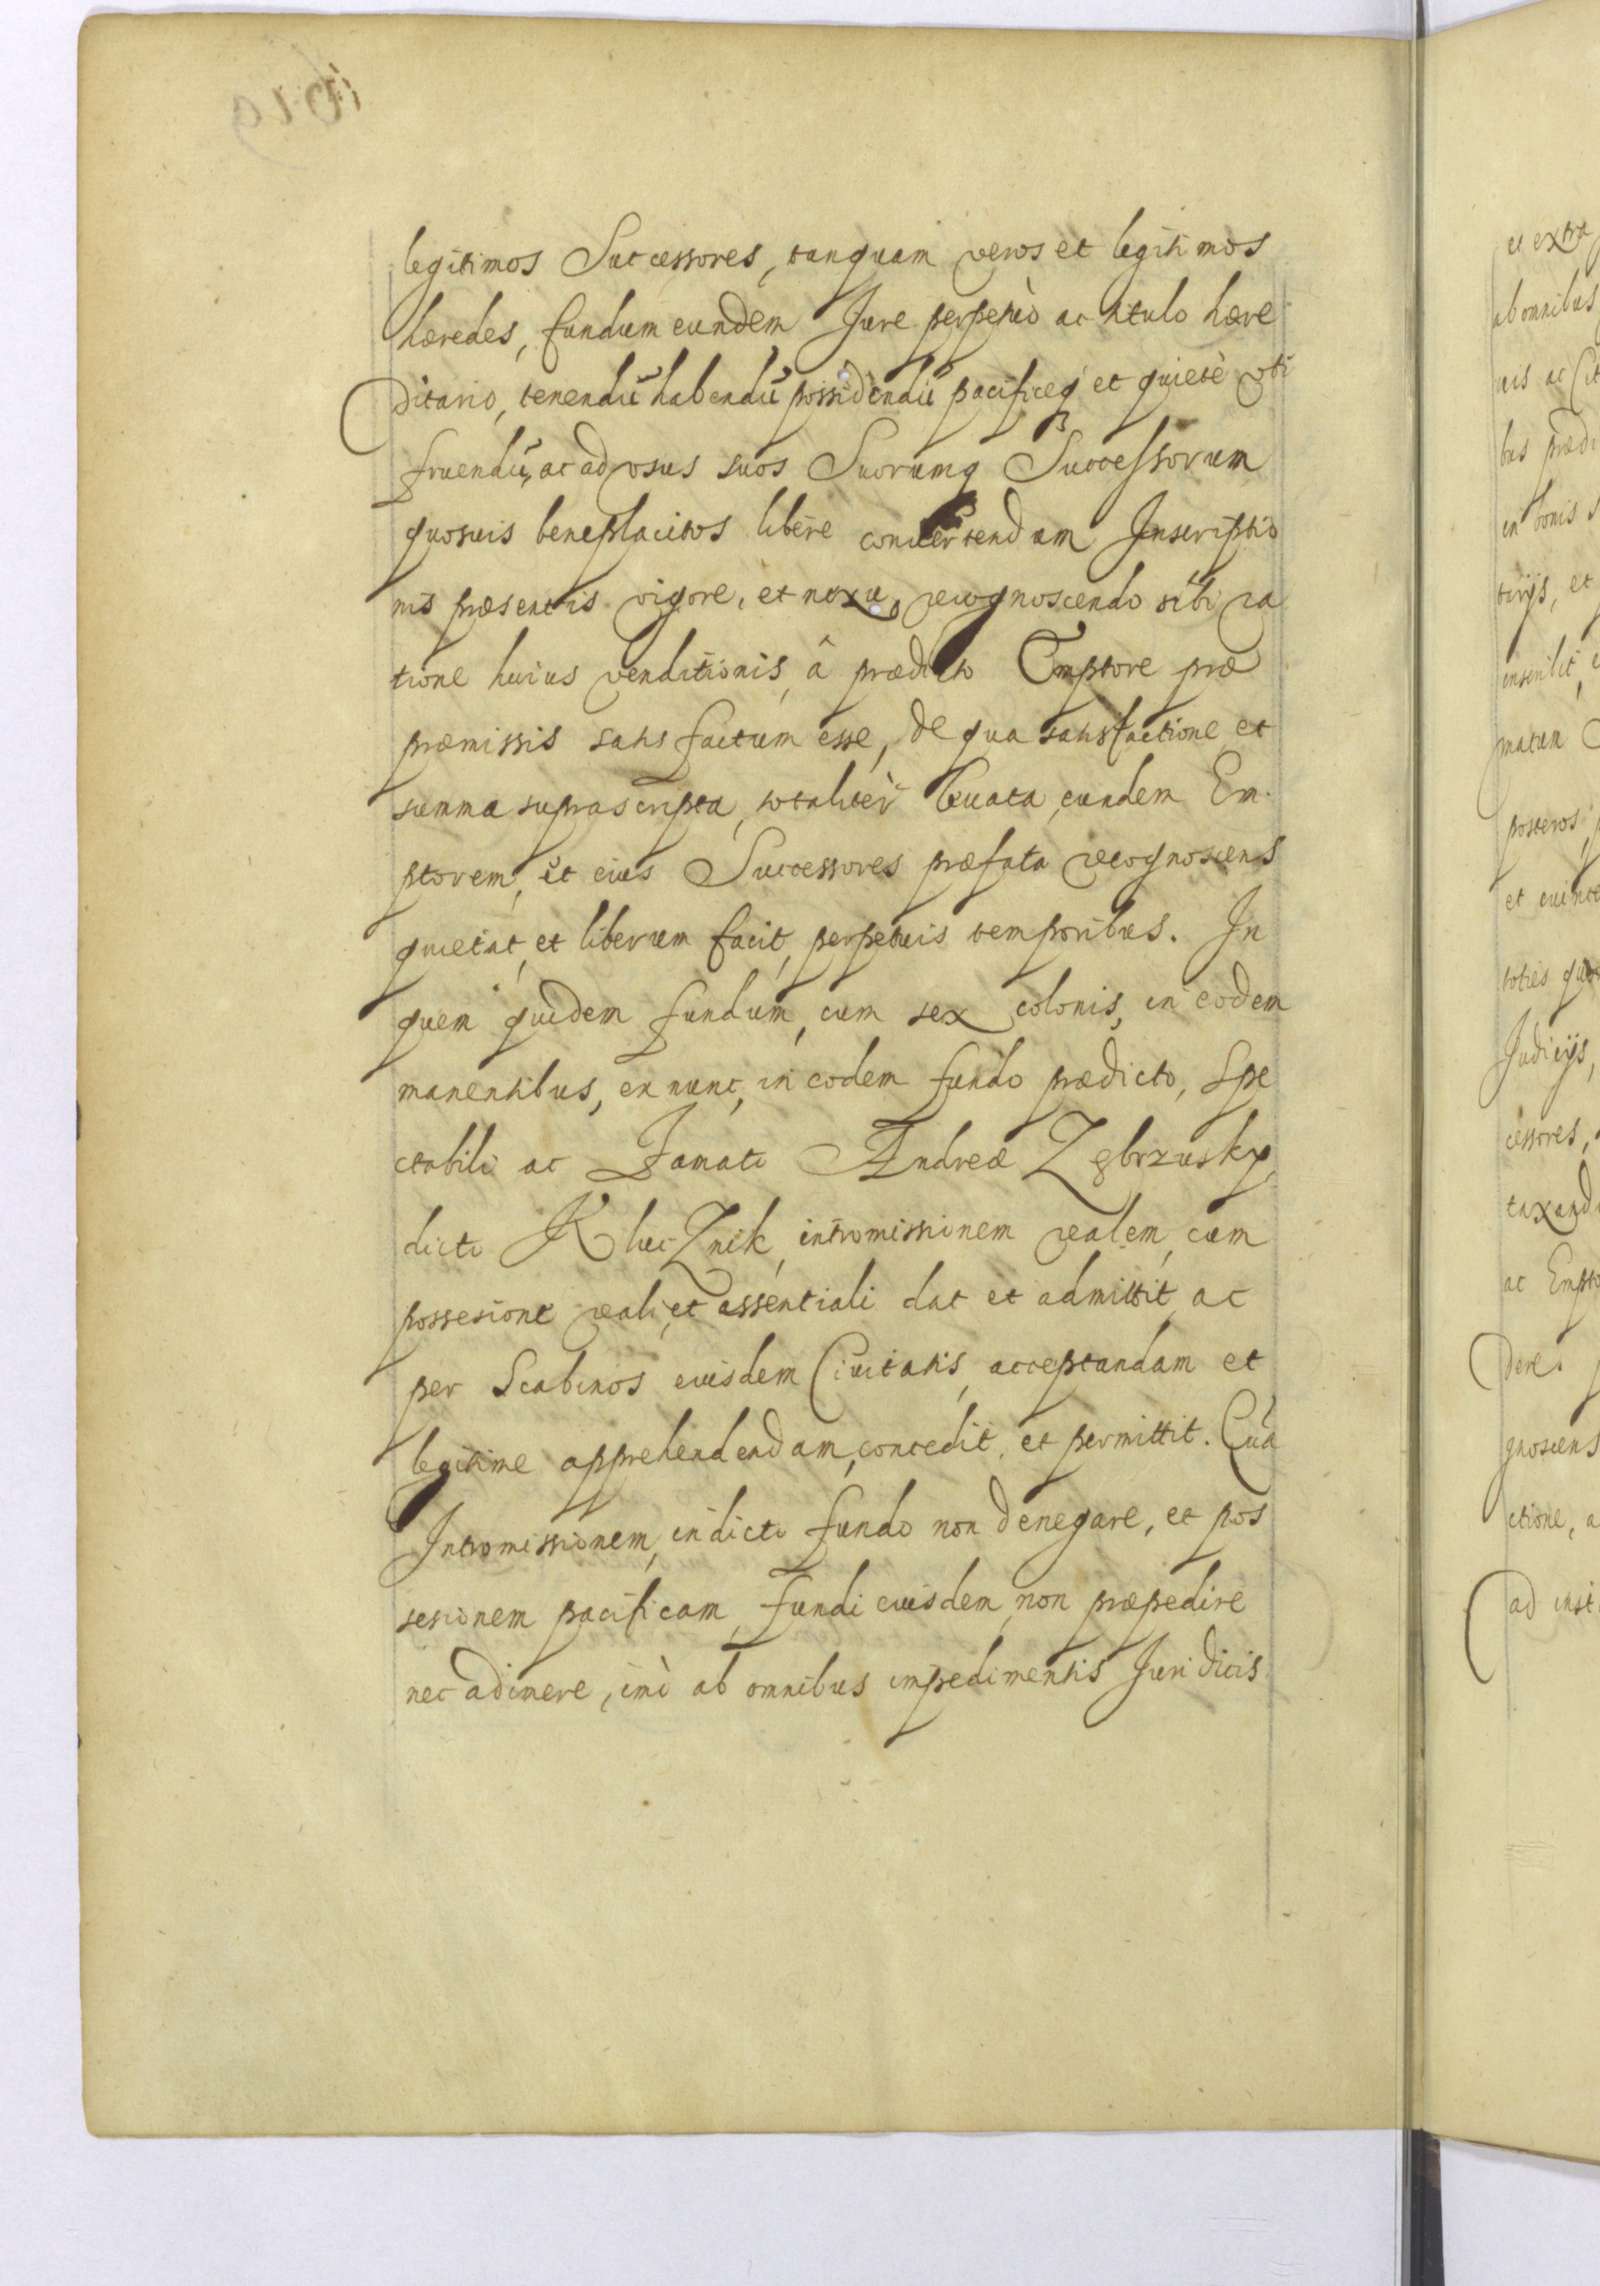 legitimos Successores, tanquam veros et legitimos
hæredes, fundum eundem Jure perpetuò ac titulo hære
ditario, tenendū habendū possidendū pacificeq́ et quietè vti
fruendū, ac ad vsus suos Suorumq Successorum
quosuis beneplacitos liberè conuertendam Inscriptio
nis præsentis vigore, et nexu, recognoscendo sibi ra
tione huius venditionis, â prædicto Emptore præ
præmissis satisfactum esse, de qua satisfactione et
summa suprascripta, totalitèr leuata, eundem Em.
ptorem, et eius Successores præfata recognoscens
quietat, et liberum facit, perpetuis temporibus. In
quem quidem fundum, cum sex colonis, in eodem
manentibus, ex nunc, in eodem fundo prædicto, Spe
ctabili ac Famato Andreæ Zębrzusky
dicto KlucZnik, intromissionem realem, cum
possesione reali, et essentiali dat et admittit, ac
per Scabinos eiusdem Ciuitatis, acceptandam et
legitime apprehendendam, concedit, et permittit. Quā
Intromissionem, in dicto fundo non denegare, et pos
sesionem pacificam, fundi eiusdem, non præpedire
nec adimere, imò ab omnibus impedimentis Juridicis
et extra
ab omnibus
uis ac Cit
bus prædi
in bonis s
tirijs, et
inscribit, e
matum
posteros,
et euince
toties quo
Judicijs,
cessores,
taxand
ac Empto
dere.
gnoscens
ctione, a
ad inst